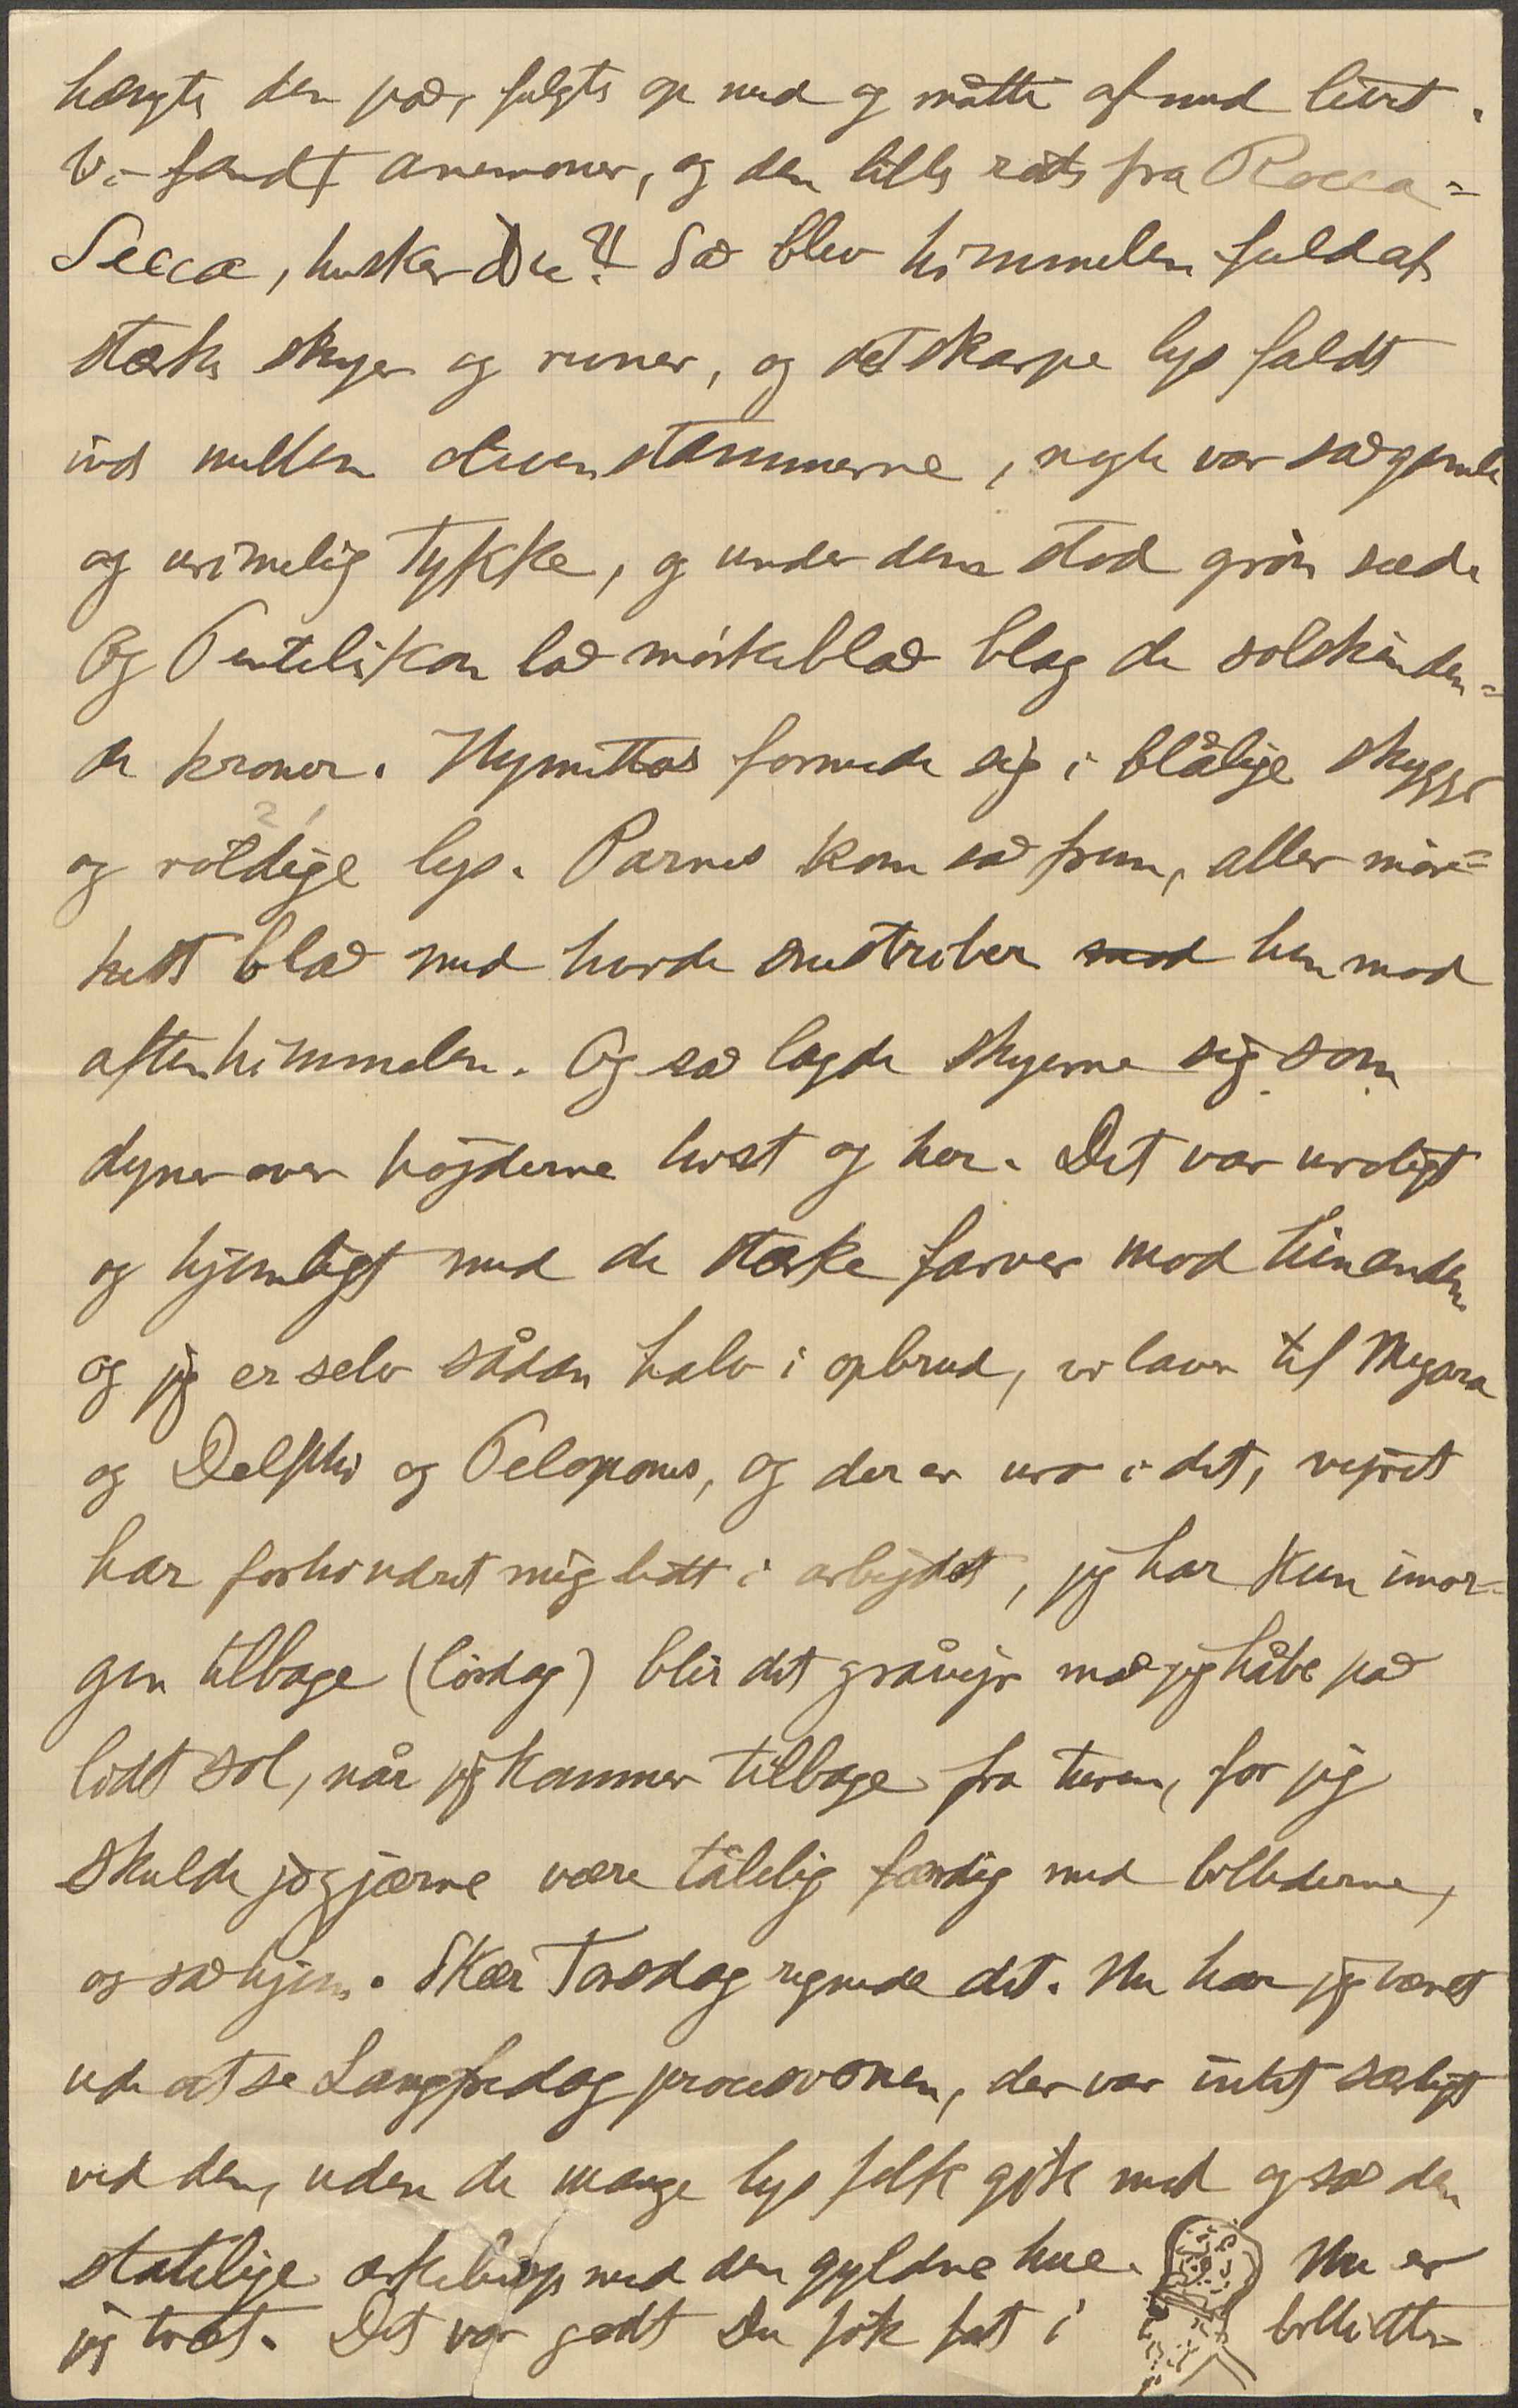 hængte den på, fulgte op med og måtte af med livet.
Vi fandt anemoner, og den lille røde fra Rocca=
Secca, husker Du? Så blev himmelen fuld af
stærke skyer og runer, og det skarpe lys faldt
ind mellem olivenstammerne, nogle var så gamle
og urimelig tykke, og under dem stod grøn sæd.
Og Pentelikon lå mørkeblå bag de solskinden=
de kroner. Hymettos formede sig i blålige skygger
og rødlige lys. Parnes kom så frem, aller mør=
kest blå med hvide snestriber mod hen mod
aftenhimmelen. Og så lagde skyerne sig som
dyner over højderne hist og her. Det var uroligt
og hjemligt med de stærke farver mod hinanden
og jeg er selv sådan halv i opbrud, vi laver til Megara
og Delphi og Pelopones, og der er uro i det, vejret
har forhindret mig lidt i arbejdet, jeg har kun imor=
gen tilbage (lørdag) blir det gråvejr må jeg håbe på
lidt sol, når jeg kommer tilbage fra turen, for jeg
skulde jo gjærne være tålelig færdig med billederne,
og så hjem. Skær Torsdag regnede det. Nu har jeg været
ude at se Langfredag processionen, der var intet særligt
ved den, uden de mange lys folk gik med og så den
statelige ærkebisp med den gyldne hue. Nu er
jeg træt. Det var godt Du fik fat i billetter=